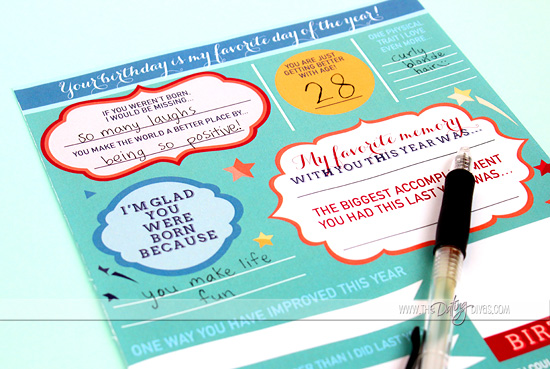 Your birthday is my favorite day of the year!
IF YOU WEREN'T BORN,
I WOULD BE MISSING...
so many laughs
YOU MAKE THE WORLD A BETTER PLACE BY...
being so positive!
YOU ARE JUST
GETTING BETTER
WITH AGE!
28
ONE PHYSICAL
TRAIT I LOVE
EVEN MORE...
curly
blonde
hair...
My favorite memory
WITH YOU THIS YEAR WAS...
THE BIGGEST ACCOMPLISHMENT
YOU HAD THIS LAST YEAR WAS...
I'M GLAD
YOU
WERE
BORN
BECAUSE
you make life
fun
ONE WAY YOU HAVE IMPROVED THIS YEAR
THAN I DID LAST YEAR
BIR
WWW.THE Dating DIVAS.COM